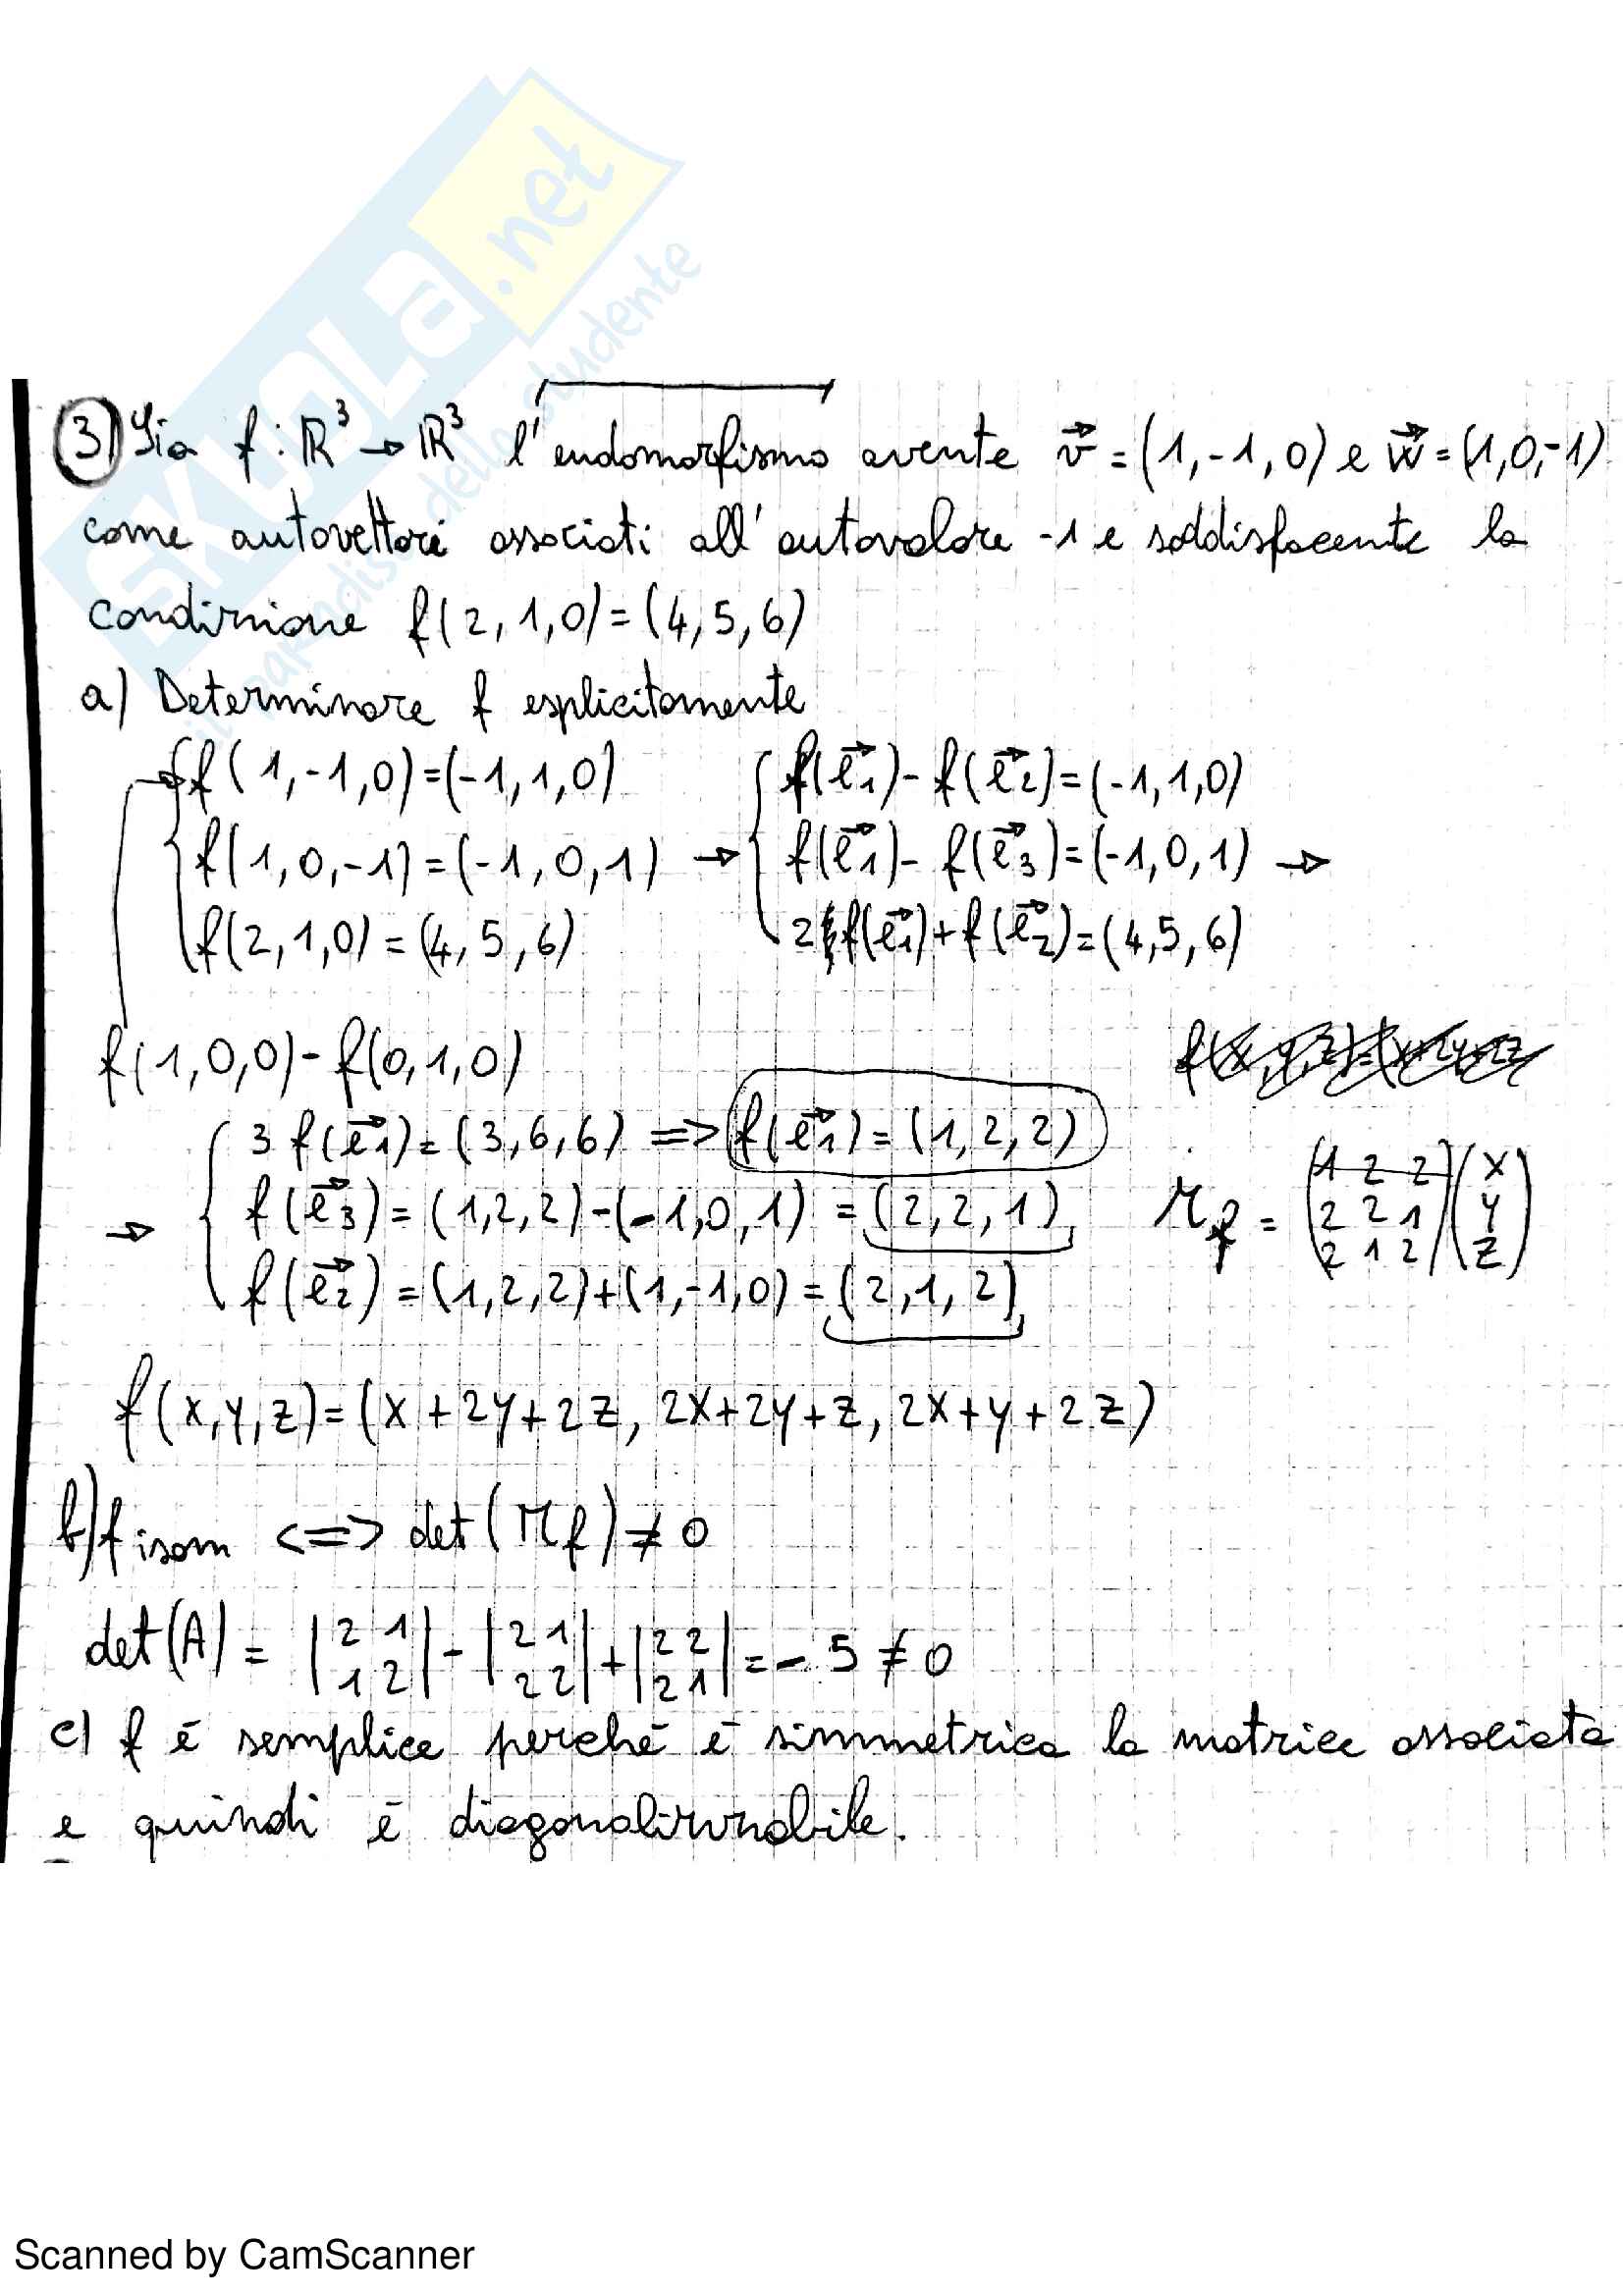 SKUOLA.net
il paradiso dello studente
3) Sia f: ℝ³ → ℝ³ l'endomorfismo avente v⃗ = (1,-1,0) e w⃗ = (1,0,-1)
come autovettori associati all'autovalore -1 e soddisfacente la
condizione f(2,1,0)=(4,5,6)
a) Determinare f esplicitamente
{ f(1,-1,0)=(-1,1,0) { f(e⃗1)-f(e⃗2)=(-1,1,0)
f(1,0,-1)=(-1,0,1) → f(e⃗1)-f(e⃗3)=(-1,0,1) →
f(2,1,0)=(4,5,6) 2f(e⃗1)+f(e⃗2)=(4,5,6)
f(1,0,0)-f(0,1,0)
{ 3f(e⃗1)=(3,6,6) => f(e⃗1)=(1,2,2)
→ f(e⃗3)=(1,2,2)-(-1,0,1)=(2,2,1)
f(e⃗2)=(1,2,2)+(1,-1,0)=(2,1,2)
Mf = (1 2 2) (x)
(2 2 1) (y)
(2 1 2) (z)
f(x,y,z)=(x+2y+2z, 2x+2y+z, 2x+y+2z)
b) f isom <=> det(Mf)≠0
det(A) = |2 1| - |2 1| + |2 2| = -5 ≠ 0
|1 2| |2 2| |2 1|
c) f è semplice perché è simmetrica la matrice associata
e quindi è diagonalizzabile.
Scanned by CamScanner